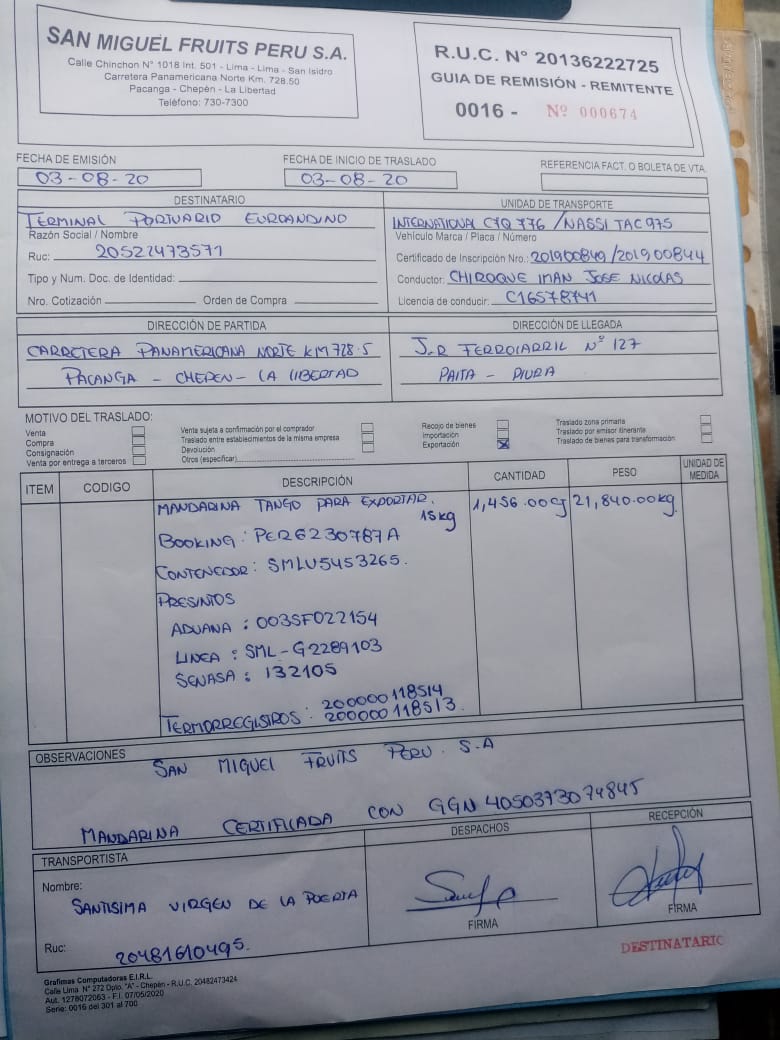 SAN MIGUEL FRUITS PERU S.A.
Calle Chinchon N° 1018 Int. 501 - Lima - Lima - San Isidro
Carretera Panamericana Norte Km. 728.50
Pacanga - Chepén - La Libertad
Teléfono: 730-7300
R.U.C. N° 20136222725
GUIA DE REMISIÓN - REMITENTE
0016 - Nº 000674
FECHA DE EMISIÓN
03-08-20
FECHA DE INICIO DE TRASLADO
03-08-20
REFERENCIA FACT. O BOLETA DE VTA.
DESTINATARIO
TERMINAL PORTUARIO EUROANDINO
Razón Social / Nombre
Ruc: 20522473571
Tipo y Num. Doc. de Identidad:
Nro. Cotización Orden de Compra
UNIDAD DE TRANSPORTE
INTERNATIONAL C7Q 776 / NASSI TAC 975
Vehículo Marca / Placa / Número
Certificado de Inscripción Nro.: 201900849/201900844
Conductor: CHIROQUE IMAN JOSE NICOLAS
Licencia de conducir: C16578741
DIRECCIÓN DE PARTIDA
CARRETERA PANAMERICANA NORTE KM 728.5
PACANGA - CHEPEN - LA LIBERTAD
DIRECCIÓN DE LLEGADA
J.R FERROCARRIL Nº 127
PAITA - PIURA
MOTIVO DEL TRASLADO:
Venta
Compra
Consignación
Venta por entrega a terceros
Venta sujeta a confirmación por el comprador
Traslado entre establecimientos de la misma empresa
Devolución
Otros (especificar)
Recojo de bienes
Importación
Exportación X
Traslado zona primaria
Traslado por emisor itinerante
Traslado de bienes para transformación
ITEM CODIGO DESCRIPCIÓN CANTIDAD PESO UNIDAD DE MEDIDA
MANDARINA TANGO PARA EXPORTAR. 1,456.00cj 21,840.00kg.
15kg
BOOKING: PER6230787A
CONTENEDOR: SMLU5453265.
PRESINTOS
ADUANA : 003SF022154
LINEA : SML-G2289103
SENASA : 132105
TERMORREGISTROS : 200000118514
200000118513.
OBSERVACIONES
SAN MIGUEL FRUITS PERU S.A
MANDARINA CERTIFICADA CON GGN 4050373074845
TRANSPORTISTA
Nombre:
SANTISIMA VIRGEN DE LA PUERTA
Ruc: 20481610495.
DESPACHOS
FIRMA
RECEPCIÓN
FIRMA
DESTINATARIO
Grafimas Computadoras E.I.R.L.
Calle Lima N° 272 Dpto. "A" - Chepén - R.U.C. 20482473424
Aut. 1278072063 - F.I. 07/05/2020
Serie: 0016 del 301 al 700